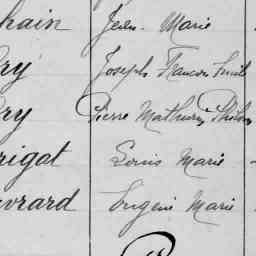 hain Jean Marie
ry Joseph François Emile
ry Pierre Mathurin
rigat Louis Marie
vrard Eugène Marie